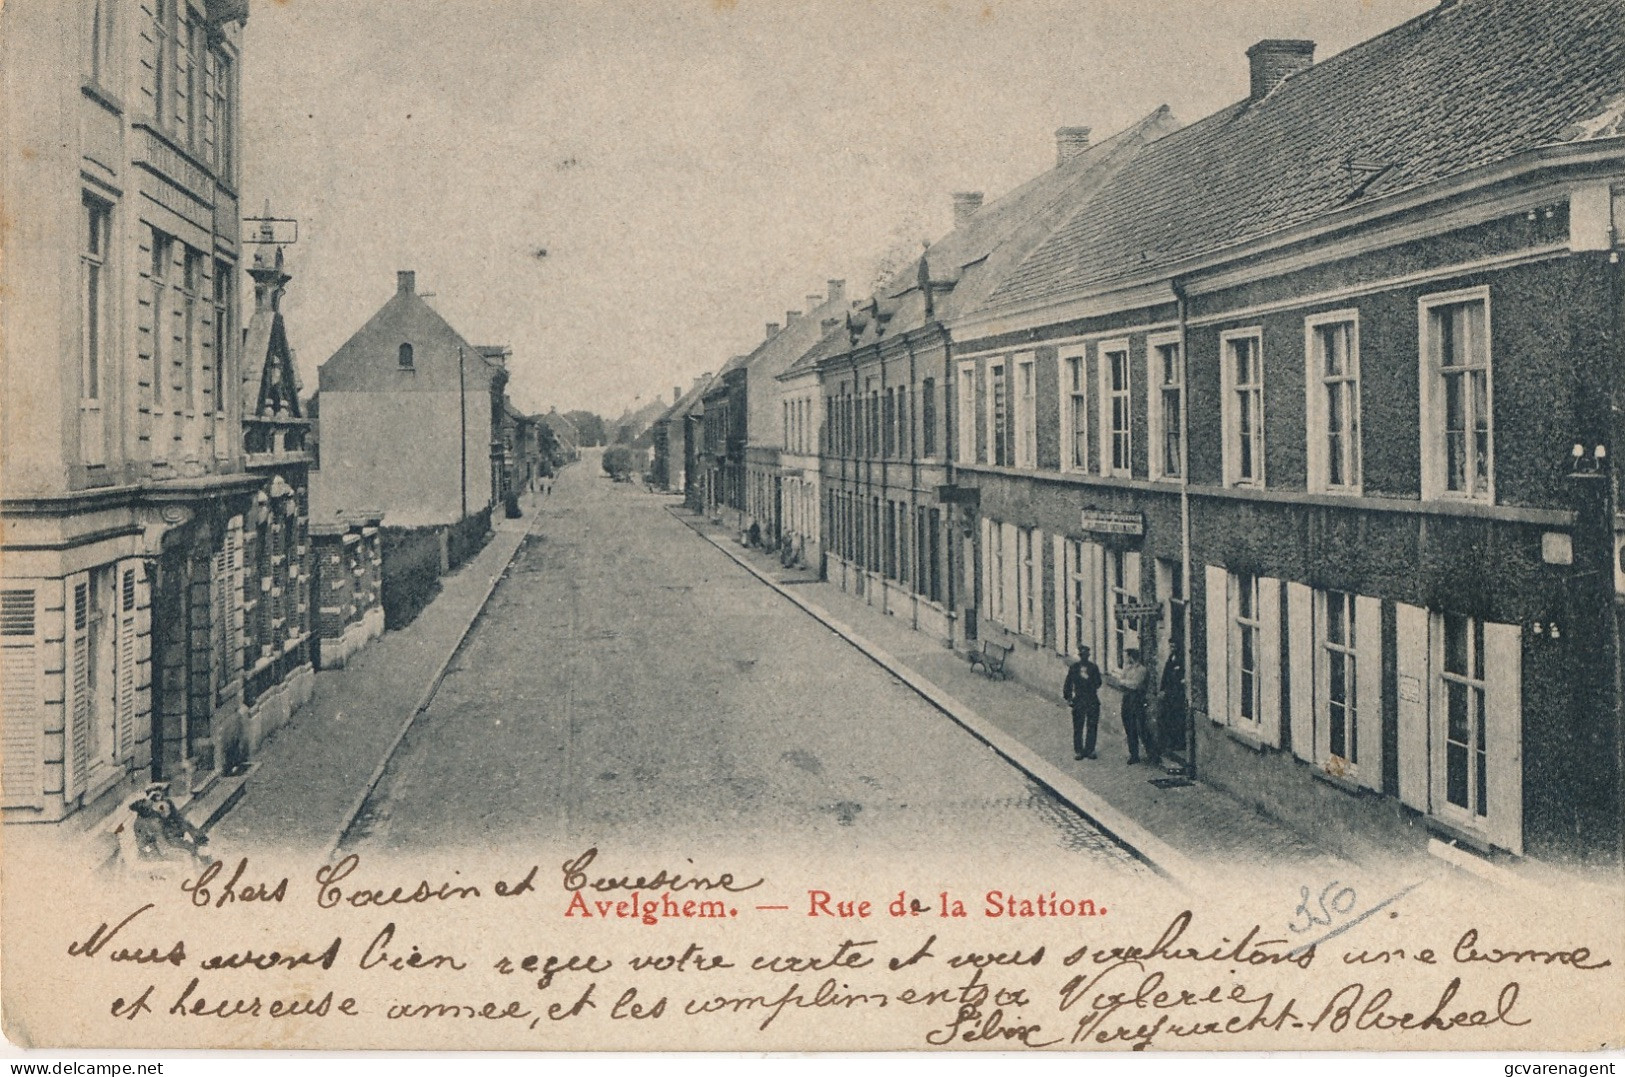 Chers Cousin et Cousine
Avelghem. — Rue de la Station.
350
Nous avons bien reçu votre carte et vous souhaitons une bonne
et heureuse annee, et les compliments a Valerie
Félix Vergracht-Blockeel
delcampe.net
gcvarenagent